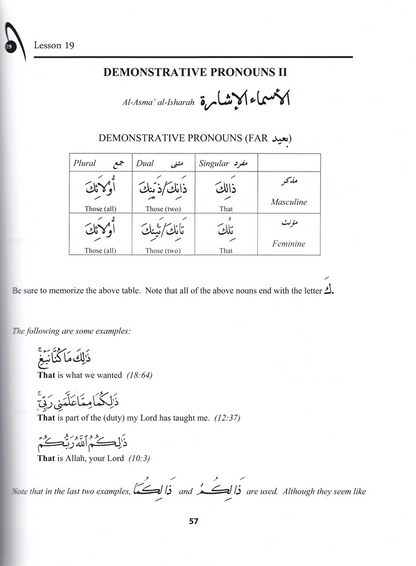 19
Lesson 19
DEMONSTRATIVE PRONOUNS II
Al-Asma' al-Isharah الأسماء الإشارة
DEMONSTRATIVE PRONOUNS (FAR بعيد)
Plural جمع Dual مثنى Singular مفرد
أُولَائِكَ ذَانِكَ/ذَيْنِكَ ذَالِكَ مذكر
Those (all) Those (two) That Masculine
أُولَائِكَ تَانِكَ/تَيْنِكَ تِلْكَ مؤنث
Those (all) Those (two) That Feminine
Be sure to memorize the above table. Note that all of the above nouns end with the letter كَ.
The following are some examples:
ذَٰلِكَ مَا كُنَّا نَبْغِ
That is what we wanted (18:64)
ذَٰلِكُمَا مِمَّا عَلَّمَنِي رَبِّي
That is part of the (duty) my Lord has taught me. (12:37)
ذَٰلِكُمُ ٱللَّهُ رَبُّكُمْ
That is Allah, your Lord (10:3)
Note that in the last two examples, ذَا لِكُمَا and ذَا لِكُمْ are used. Although they seem like
57